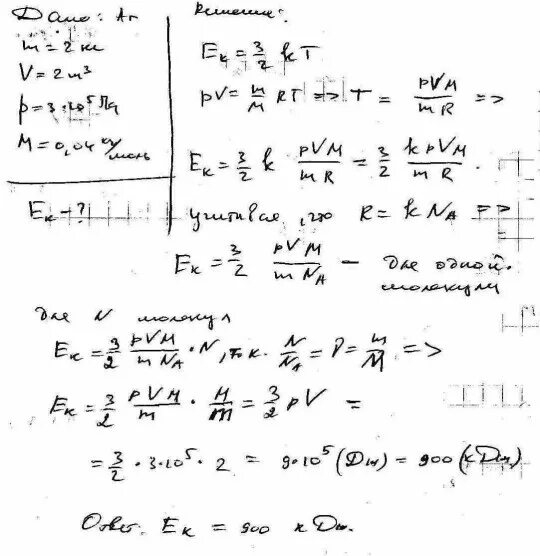 Дано: Ar
m = 2 кг
V = 2 м³
p = 3 · 10⁵ Па
M = 0,04 кг/моль
Eк - ?
Решение:
Eк = 3/2 kT
pV = m/M RT => T = pVM/mR =>
Eк = 3/2 k · pVM/mR = 3/2 kpVM/mR.
учитывая, что R = kNA =>
Eк = 3/2 pVM/mNA – для одной
молекулы
для N молекул
Eк = 3/2 pVM/mNA · N, т.к. N/NA = ν = m/M =>
Eк = 3/2 pVM/m · m/M = 3/2 pV =
= 3/2 · 3·10⁵ · 2 = 9·10⁵ (Дж) = 900 (кДж)
Ответ: Eк = 900 кДж.